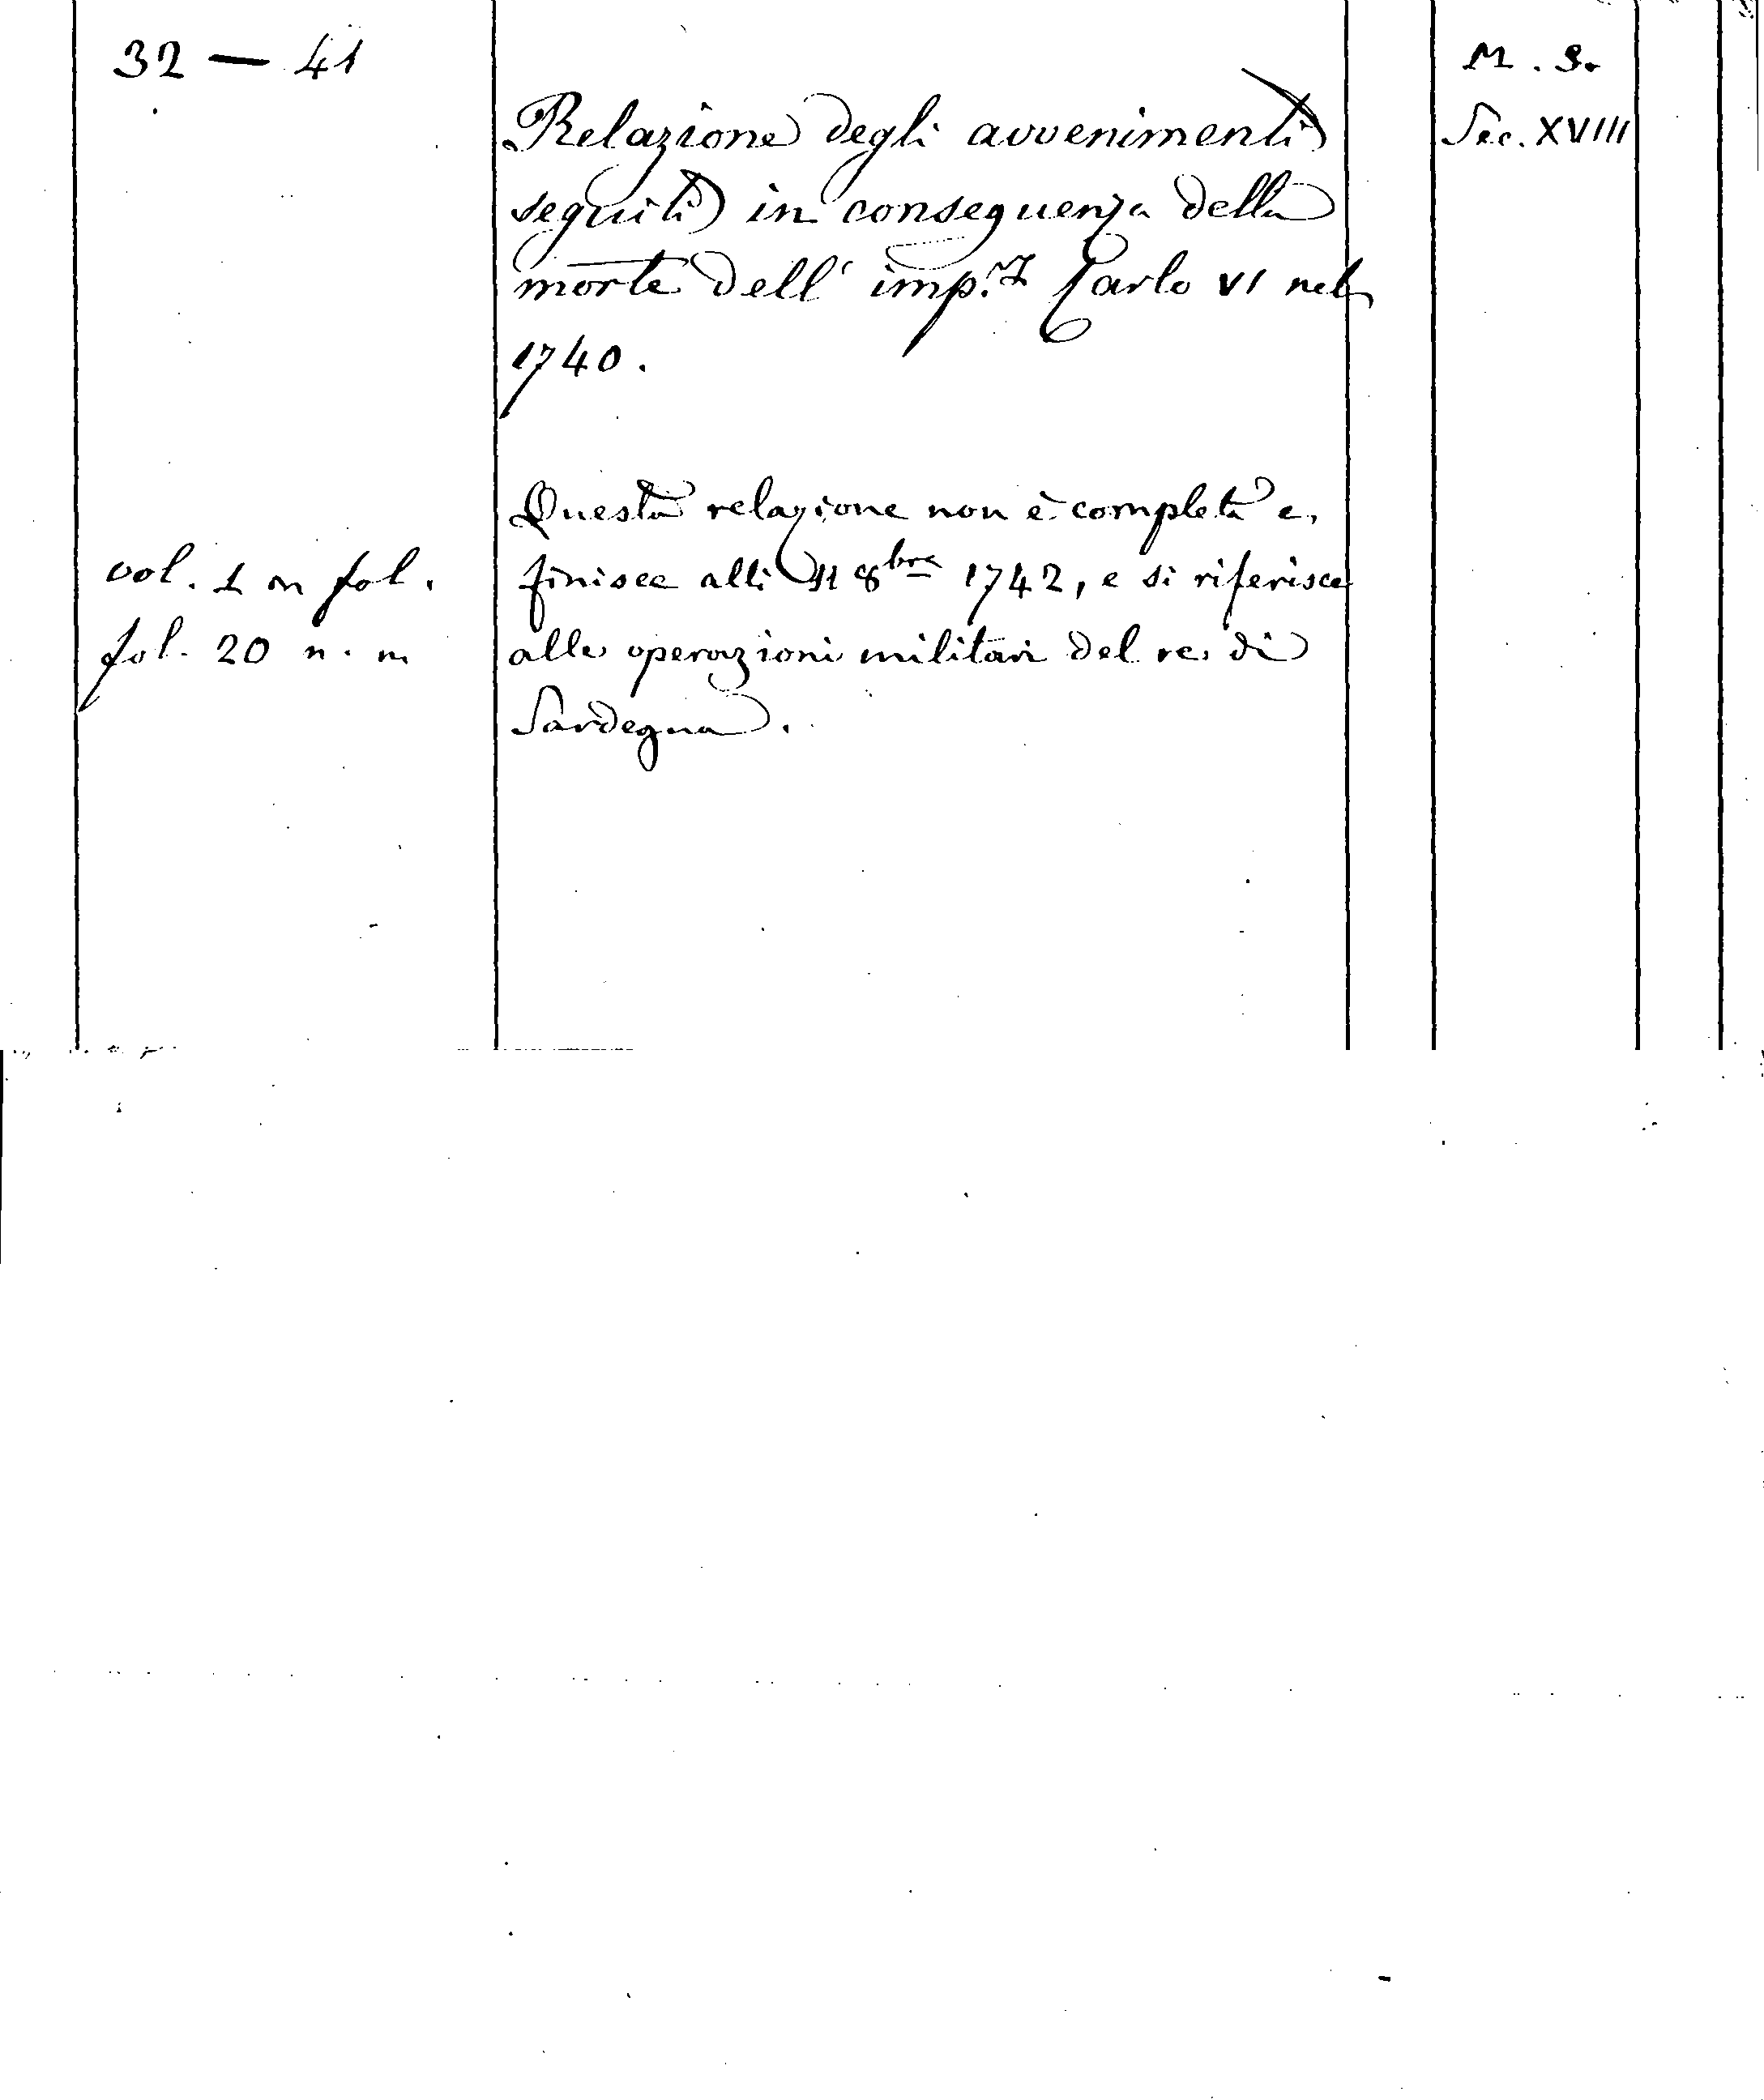 32 — 41
Relazione degli avvenimenti
seguiti in conseguenza della
morte dell' imp.r Carlo VI nel
1740.
Questa relazione non è completa e
finisce alli 11 8bre 1742, e si riferisce
alle operazioni militari del re di
Sardegna.
vol. 1 in fol.
fol. 20 n. n.
M. S.
Sec. XVIII